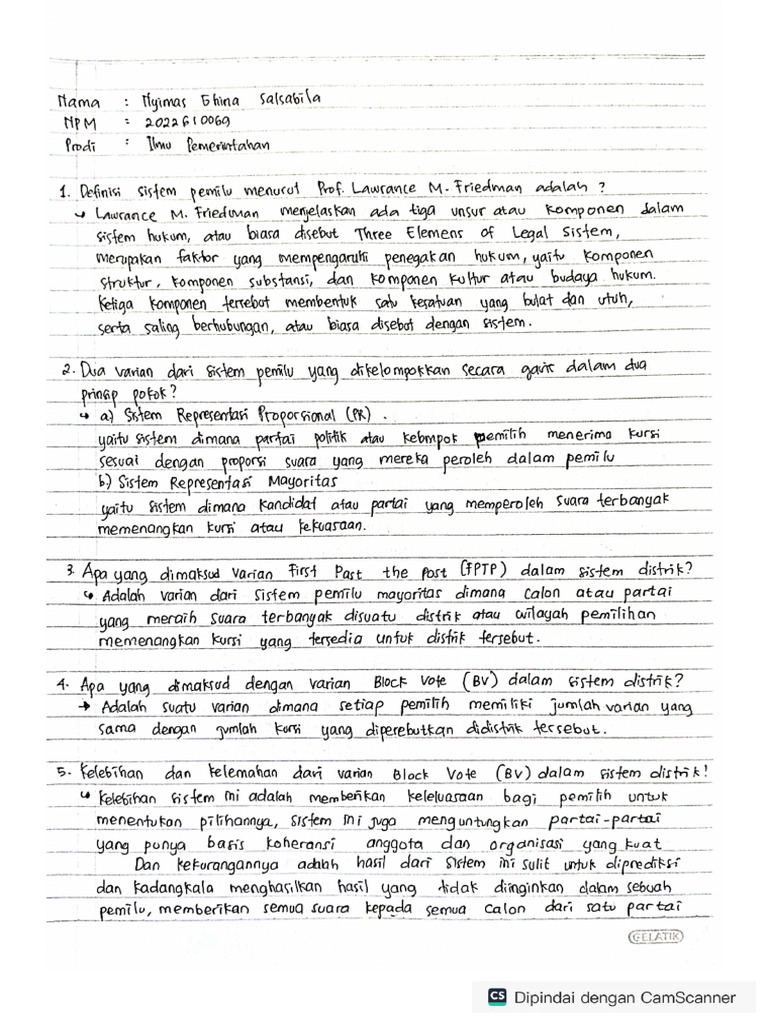 Nama : Nyimas Ghina Salsabila
NPM : 2022610069
Prodi : Ilmu Pemerintahan
1. Definisi sistem pemilu menurut Prof. Lawrance M. Friedman adalah ?
↳ Lawrance M. Friedman menjelaskan ada tiga unsur atau komponen dalam
sistem hukum, atau biasa disebut Three Elemens of Legal Sistem,
merupakan faktor yang mempengaruhi penegakan hukum, yaitu komponen
struktur, komponen substansi, dan komponen kultur atau budaya hukum.
Ketiga komponen tersebut membentuk satu kesatuan yang bulat dan utuh,
serta saling berhubungan, atau biasa disebut dengan sistem.
2. Dua varian dari sistem pemilu yang dikelompokkan secara garis dalam dua
prinsip pokok?
↳ a) Sistem Representasi Proporsional (PR) .
yaitu sistem dimana partai politik atau kelompok pemilih menerima kursi
sesuai dengan proporsi suara yang mereka peroleh dalam pemilu
b) Sistem Representasi Mayoritas
yaitu sistem dimana kandidat atau partai yang memperoleh suara terbanyak
memenangkan kursi atau kekuasaan.
3. Apa yang dimaksud varian First Past the Post (FPTP) dalam sistem distrik?
↳ Adalah varian dari sistem pemilu mayoritas dimana calon atau partai
yang meraih suara terbanyak disuatu distrik atau wilayah pemilihan
memenangkan kursi yang tersedia untuk distrik tersebut.
4. Apa yang dimaksud dengan varian Block Vote (BV) dalam sistem distrik?
→ Adalah suatu varian dimana setiap pemilih memiliki jumlah varian yang
sama dengan jumlah kursi yang diperebutkan didistrik tersebut.
5. Kelebihan dan kelemahan dari varian Block Vote (BV) dalam sistem distrik!
↳ Kelebihan sistem ini adalah memberikan keleluasaan bagi pemilih untuk
menentukan pilihannya, sistem ini juga menguntungkan partai-partai
yang punya basis koheransi anggota dan organisasi yang kuat
Dan kekurangannya adalah hasil dari sistem ini sulit untuk diprediksi
dan kadangkala menghasilkan hasil yang tidak diinginkan dalam sebuah
pemilu, memberikan semua suara kepada semua calon dari satu partai
GELATIK
CS Dipindai dengan CamScanner